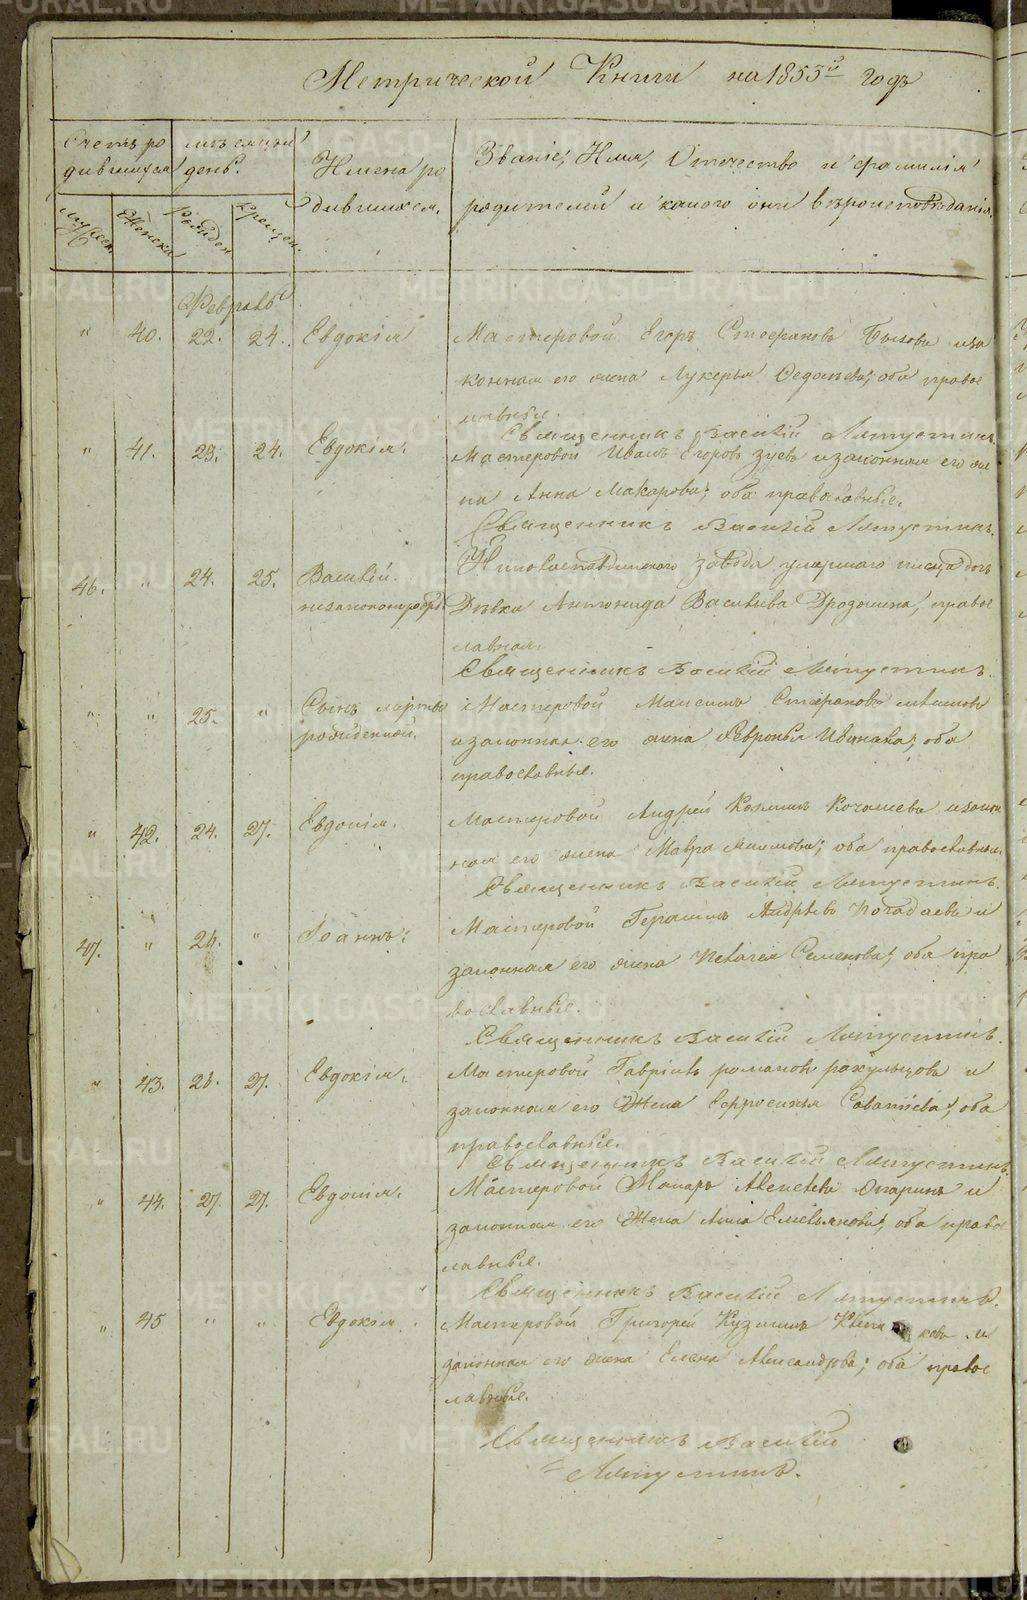 Метрической Книги на 1853й годъ
Счетъ ро
дившихся
Мужеск.
Женска
месяцъ и
день.
Рожден
Крещен.
Имена ро
дившихся.
Званіе, Имя, Отчество и фамилія
родителей и какого они вероисповеданія.
Февраль
" 40. 22. 24. Евдокія Мастеровой Егоръ Стефановъ и за
конная его жена Лукерья ; оба правос
лавные.
Священникъ Василій Ляпустинъ
" 41. 23. 24. Евдокія. Мастеровой Иванъ Егоровъ Зуевъ и законная его же
на Анна Макарова; оба православные.
Священникъ Василій Ляпустинъ.
46. " 24. 25. Василій. завода умершаго дочь
незаконнорожд. Девка Антонида Васильева Дрозжина, правос
лавная.
Священникъ Василій Ляпустинъ.
" " 25. " Сынъ мертво Мастеровой Максимъ Стефановъ
рожденной. и законная его жена Февронья Иванова; оба
православные.
" 42. 24. 27. Евдокія. Мастеровой Андрей Козминъ и закон
ная его жена Мавра ; оба православные.
Священникъ Василій Ляпустинъ.
47. " 24. " Іоаннъ. Мастеровой Герасимъ Андреевъ Погадаевъ и
законная его жена Пелагея Семенова; оба пра
вославные.
Священникъ Василій Ляпустинъ.
" 43. 26. 27. Евдокія. Мастеровой Гавріилъ Романовъ Ракульцовъ и
законная его Жена Ефросинья Саватіева; оба
православные.
Священникъ Василій Ляпустинъ.
" 44. 27. 27. Евдокія. Мастеровой Макаръ Алексеевъ Опаринъ и
законная его Жена Анна Емельянова; оба правос
лавные.
Священникъ Василій Ляпустинъ.
" 45 " " Евдокія. Мастеровой Григорей Кузминъ и
законная его жена Елена Александрова; оба правос
лавные.
Священникъ Василій
Ляпустинъ.
METRIKI.GASO-URAL.RU